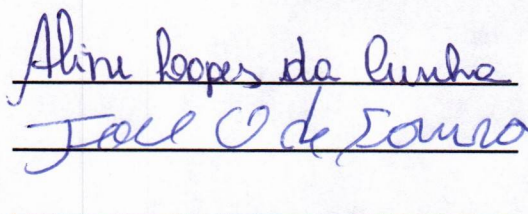 Aline Loopes da Cunha
José O de Souza